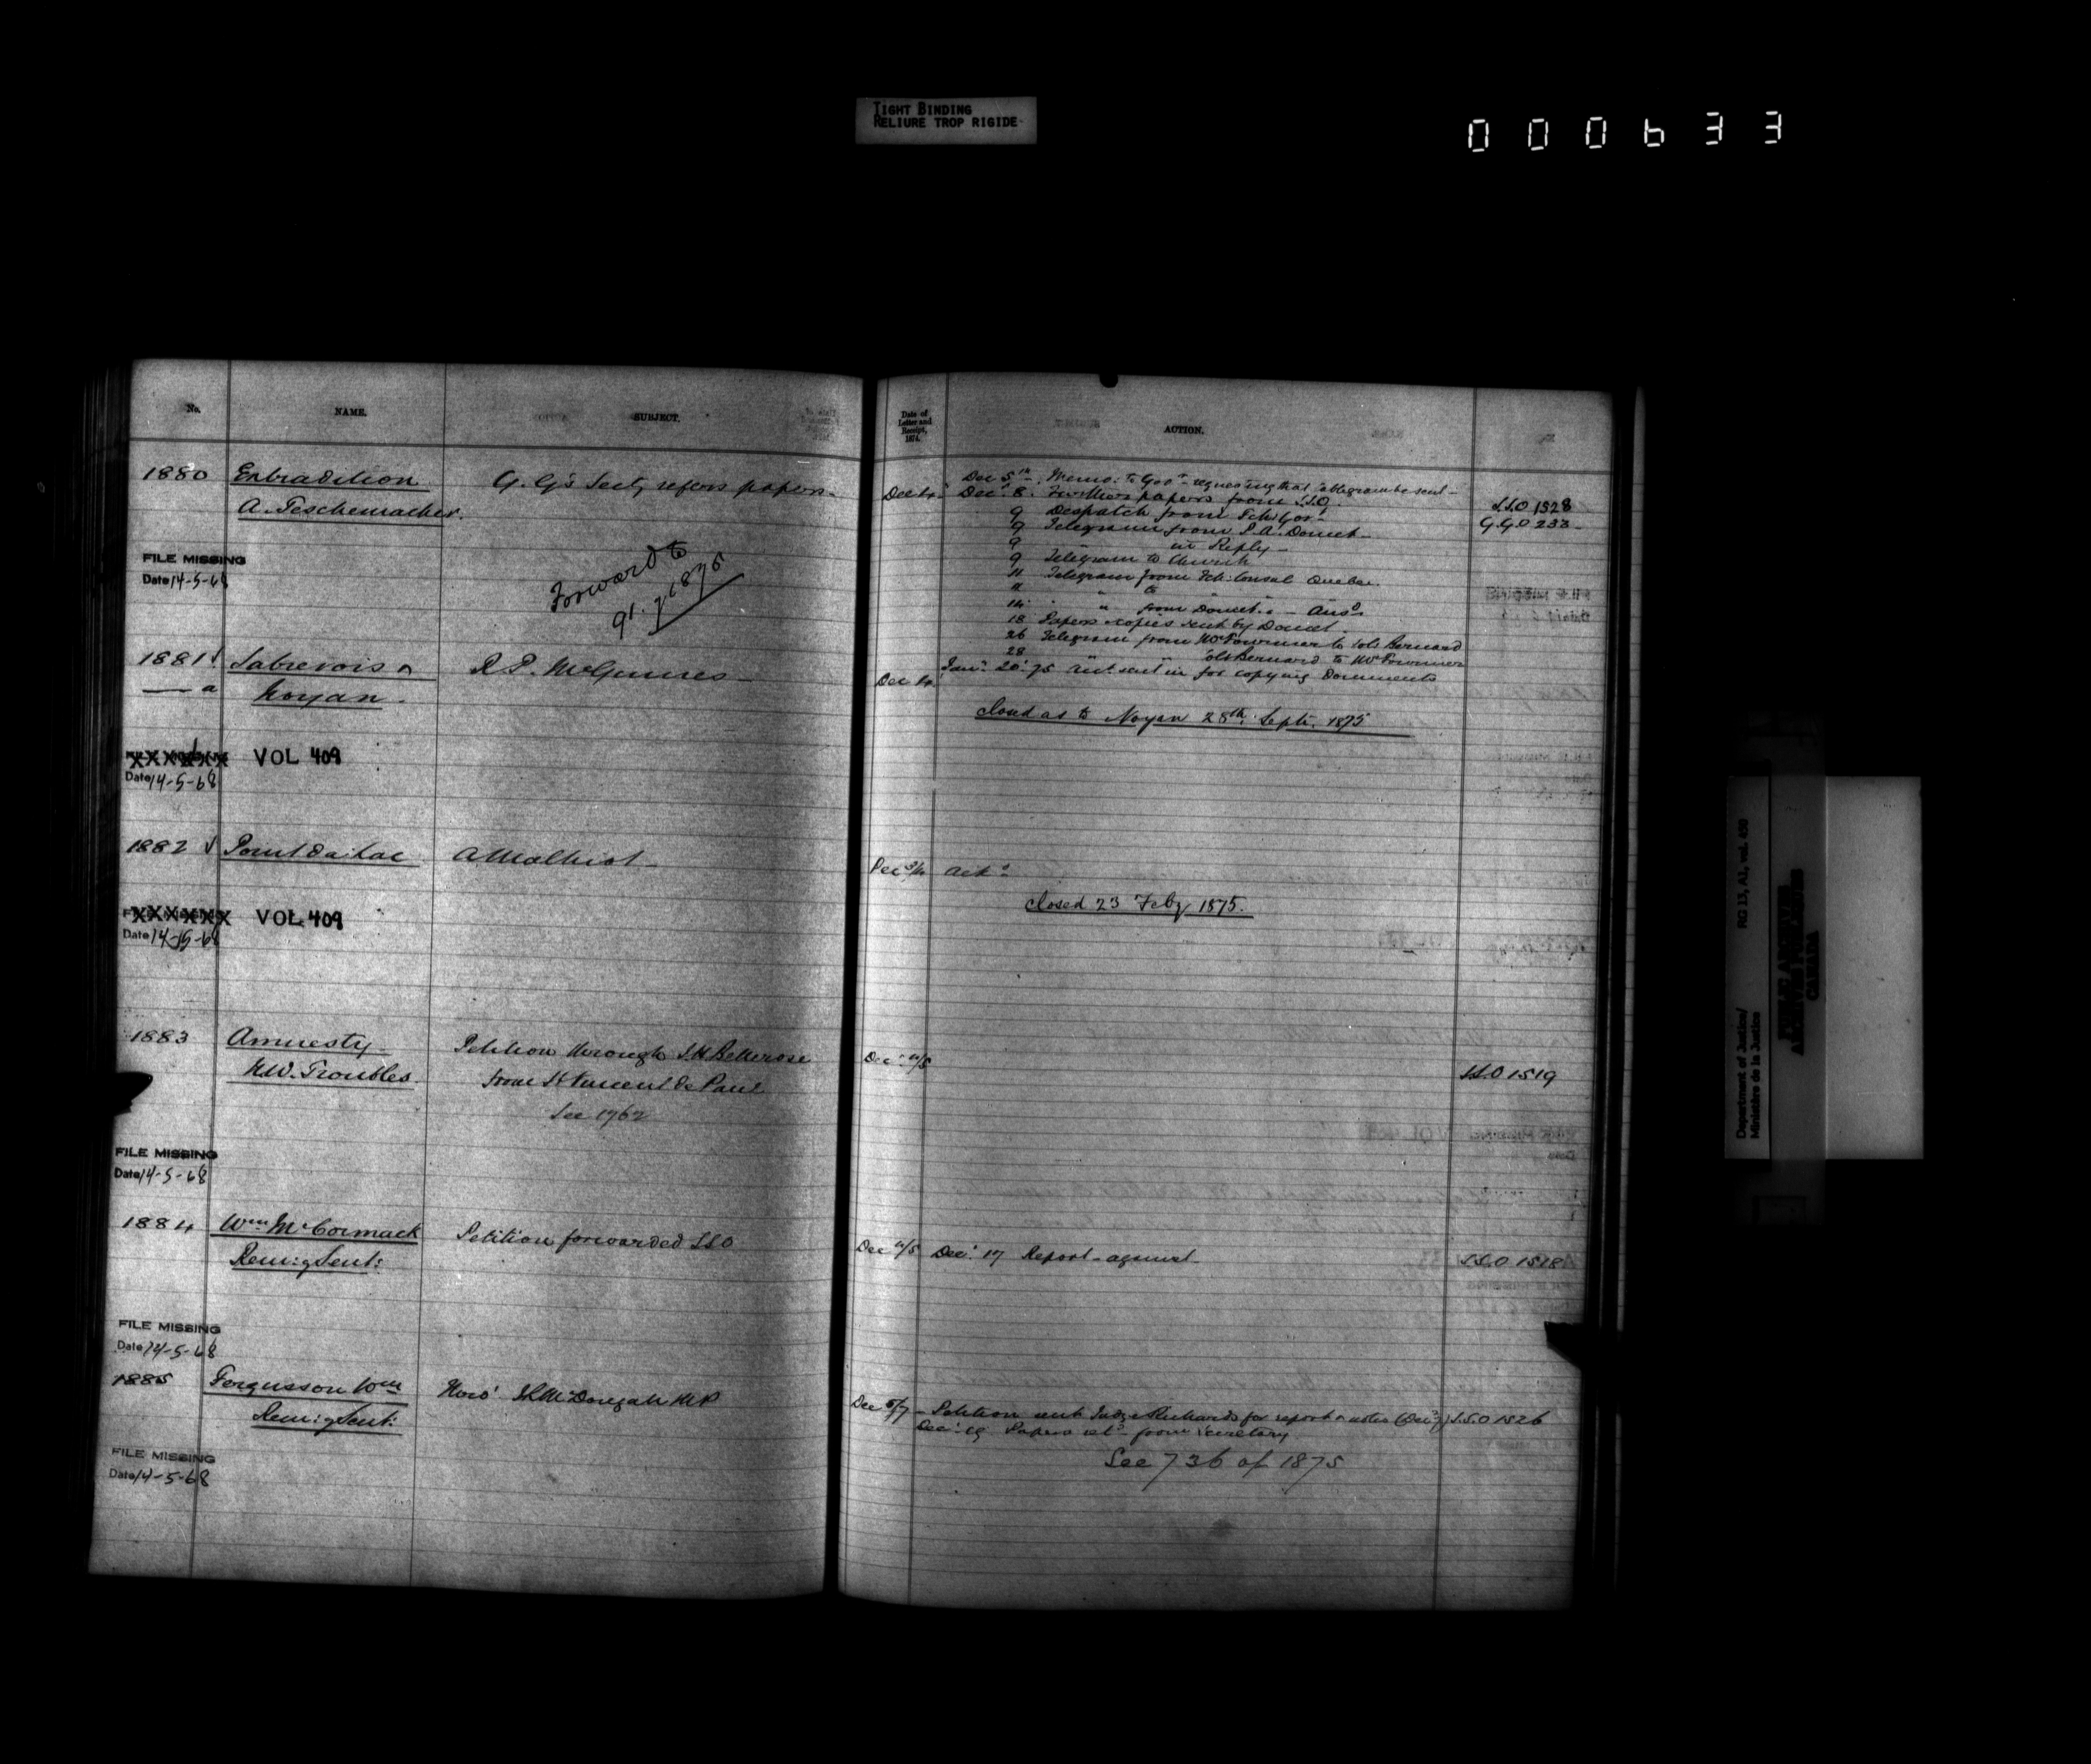 TIGHT BINDING
RELIURE TROP RIGIDE
000633
No. NAME. SUBJECT.
1880 Extradition G. G's Secty refers papers
A. Teschemacher.
FILE MISSING
Date 14-5-68
Forward to
91 of 1875
1881 Sabrevois &
— a Noyan. R P. McGinnes
VOL 409
Date 14-5-68
1882 A Malhiot
VOL 409
Date 14-5-68
1883 Amnesty Petition through J.H. Bellerose
N.W. Troubles from St Vincent de Paul
See 1762
FILE MISSING
Date 14-5-68
1884 Wm McCormack Petition forwarded SSO
Rem: of Sent:
FILE MISSING
Date 14-5-68
1885 Fergusson Wm
Rem: of Sent:
FILE MISSING
Date 14-5-68
Date of Letter and Receipt, 1874. ACTION.
Dec 5th Memo: to Govr requesting that cablegram be sent S.S.O 1528
Dec 4 Decr 8. Further papers from S.S.O. G.G.O 233
9 Despatch from Fch: Govt
9 Telegram from P.A. Doucet
9 " in Reply
9 Telegram to Church
11 Telegram from Fch: Consul Quebec.
" " to
14 " from Doucet - Ansd
18 Papers copies sent by Doucet
26 Telegram from Mr Fournier to Col: Bernard
28 " Col: Bernard to Mr Fournier
Jany 20 '75 Acct sent in for copying Documents
Dec
closed as to Noyan 28th Septr. 1875
Dec 3/4 Ackd
closed 23 Feby 1875.
Dec 4/5 S.S.O 1519
Dec 4/5 Decr 17 Report against S.S.O 1518
Dec 5/7 Petition sent Judge Richards for report & notes S.S.O 1526
Decr 19 Papers retd from Secretary
See 736 of 1875
Department of Justice/
Ministère de la Justice
RG 13, A1, vol. 450
PUBLIC ARCHIVES
ARCHIVES PUBLIQUES
CANADA